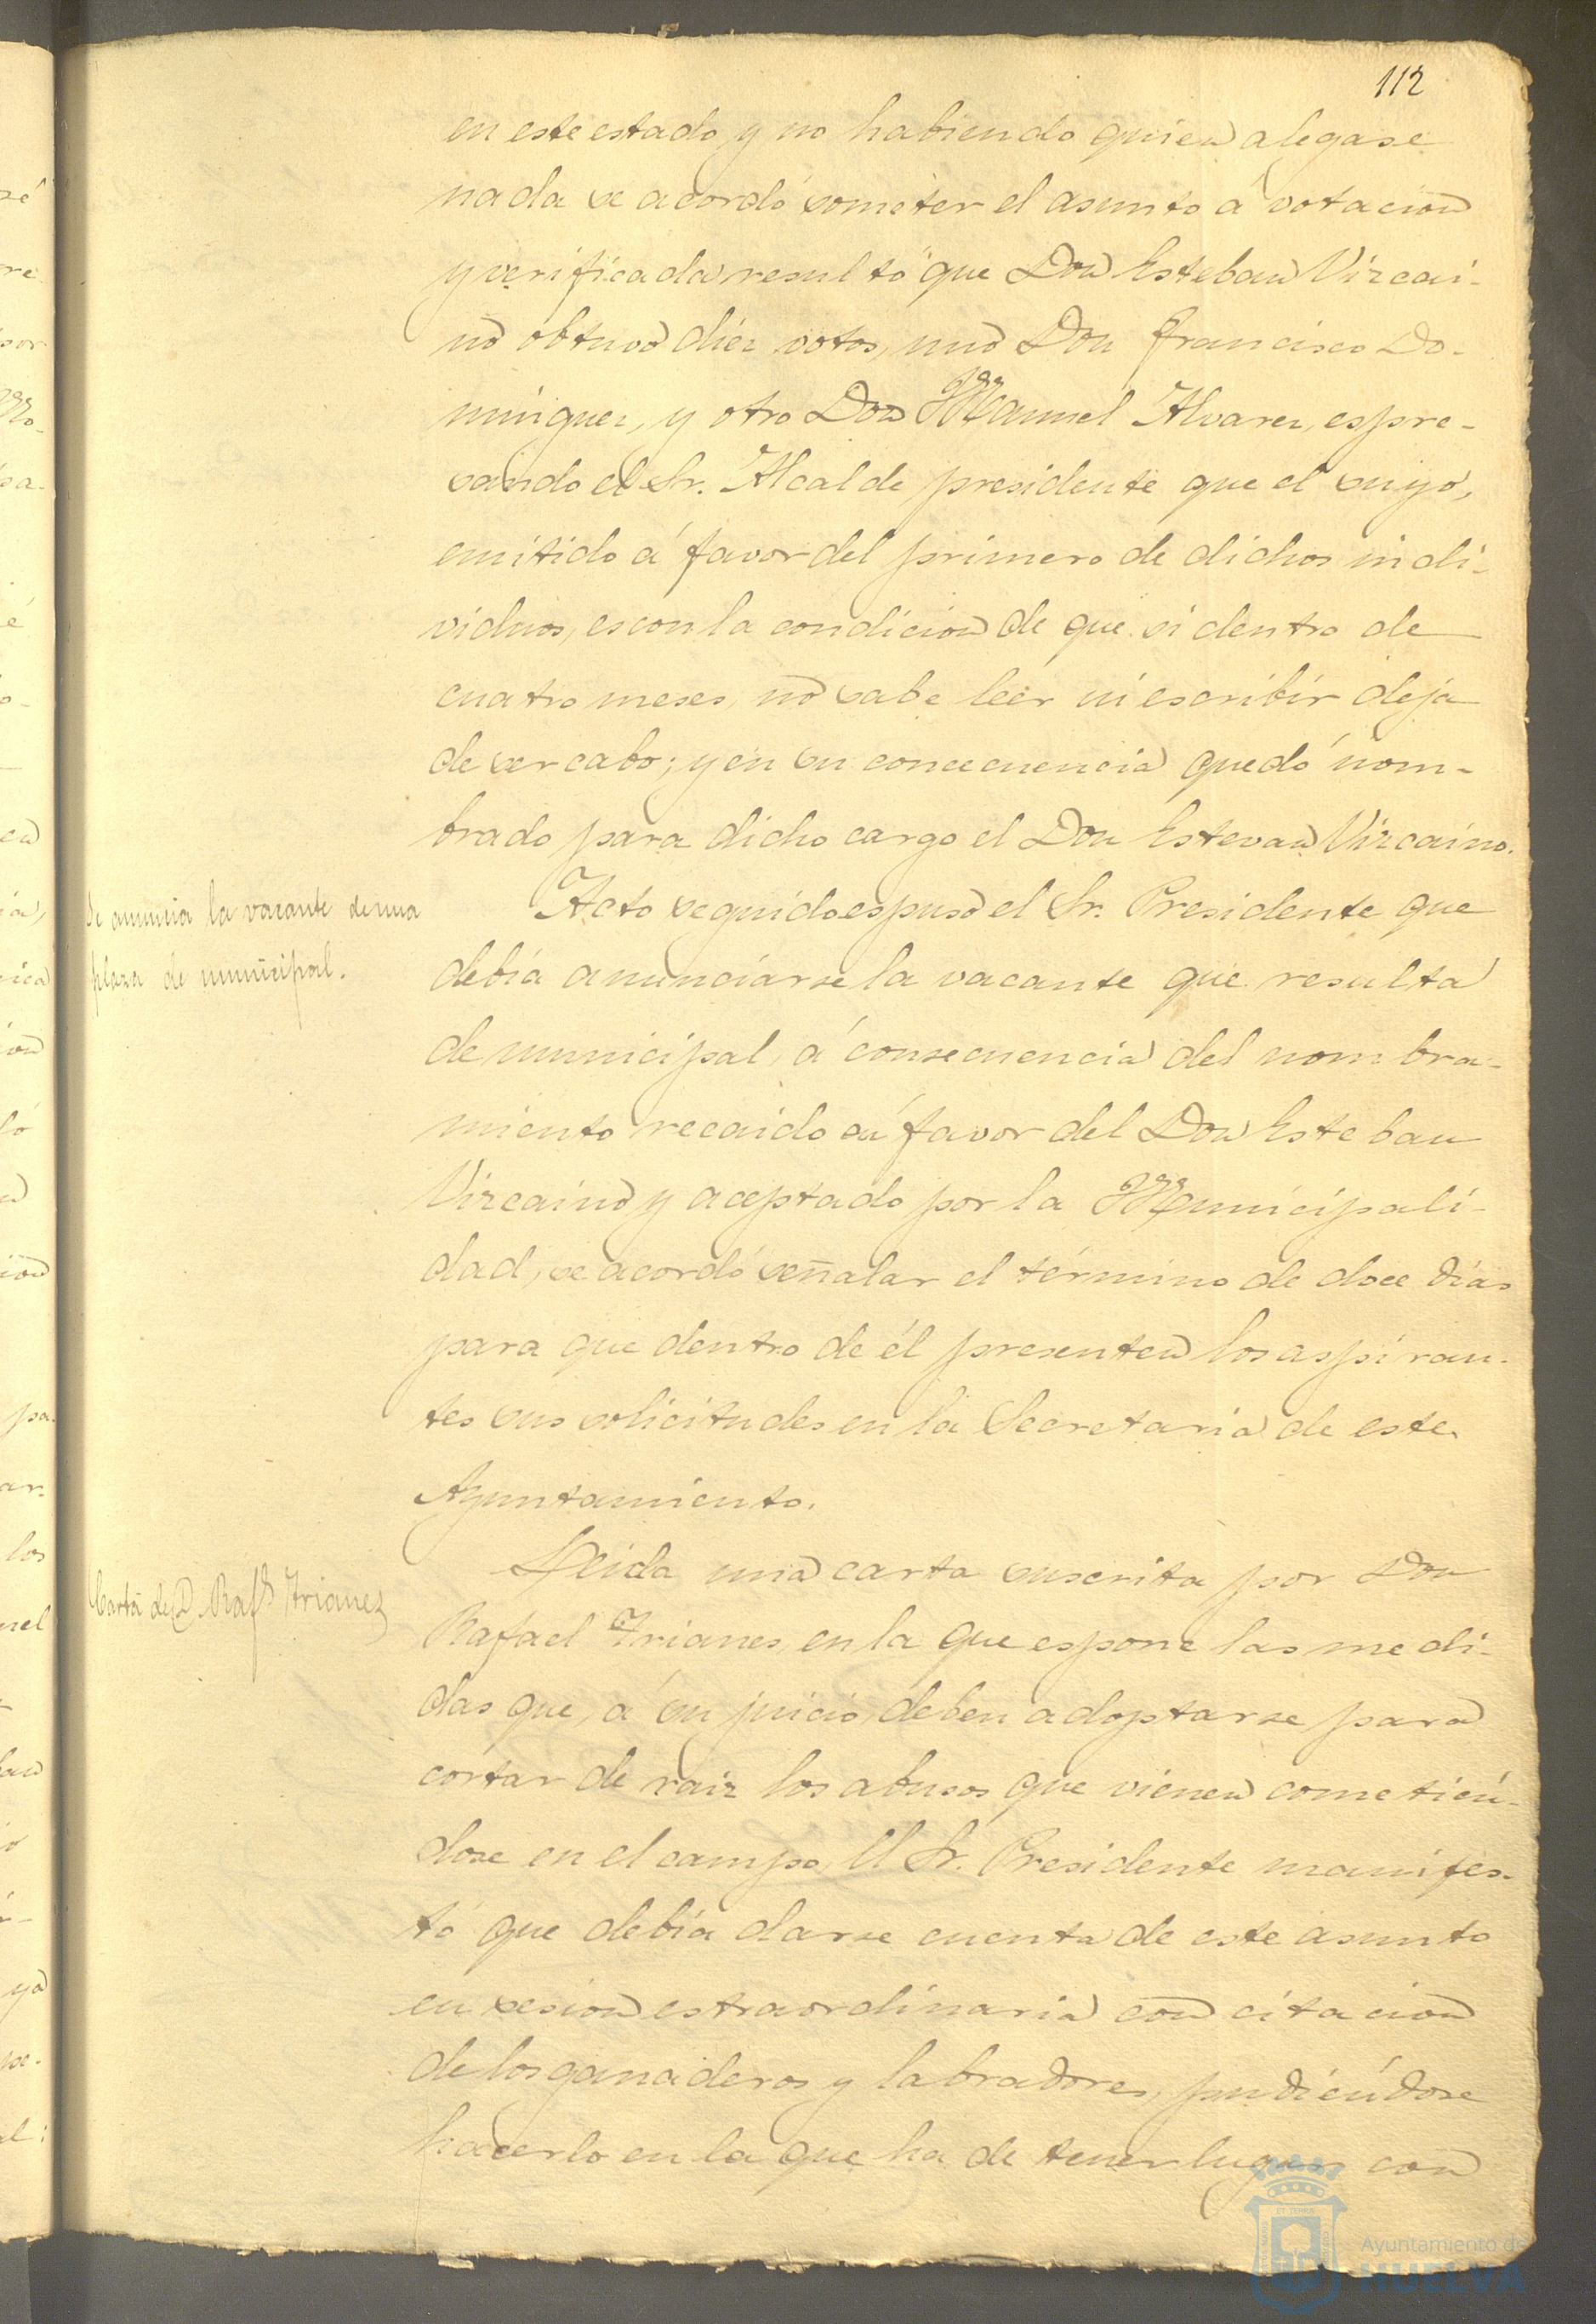 112
en este estado y no habiendo quien alegase
nada se acordó someter el asunto á votacion
y verificada resultó que Don Esteban Vizcai-
no obtuvo diez votos, uno Don Francisco Do-
minguez, y otro Don Manuel Alvarez, espre-
sando el Sr. Alcalde presidente que el suyo,
emitido á favor del primero de dichos indi-
viduos, es con la condicion de que si dentro de
cuatro meses, no sabe leer ni escribir deja
de ser cabo; y en su concecuencia quedó nom-
brado para dicho cargo el Don Estevan Vizcaino.
Se anuncia la vacante de una
plaza de municipal.
Acto seguido espuso el Sr. Presidente que
debia anunciarse la vacante que resulta
de municipal, á consecuencia del nombra-
miento recaido en favor del Don Esteban
Vizcaino y aceptado por la Municipali-
dad, se acordó señalar el término de doce dias
para que dentro de él presenten los aspiran-
tes sus solicitudes en la Secretaria de este
Ayuntamiento.
Carta de D. Raf.l Trianez
Leida una carta suscrita por Don
Rafael Trianes, en la que espone las medi-
das que, á su juicio, deben adoptarse para
cortar de raiz los abusos que vienen cometién-
dose en el campo, El Sr. Presidente manifes-
tó que debia darse cuenta de este asunto
en sesion estraordinaria con citacion
de los ganaderos y labradores, pudiéndose
hacerlo en la que ha de tener lugar con
Ayuntamiento de
HUELVA